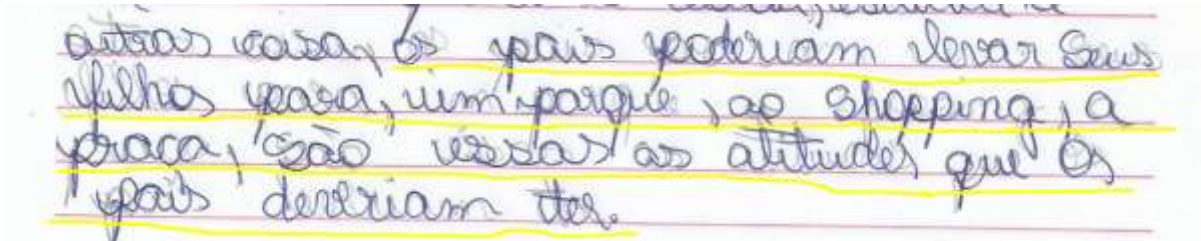 outras casa, os pais poderiam levar seus
filhos para, um parque, ao shopping, a
praça, são essas as atitudes que os
pais deveriam ter.